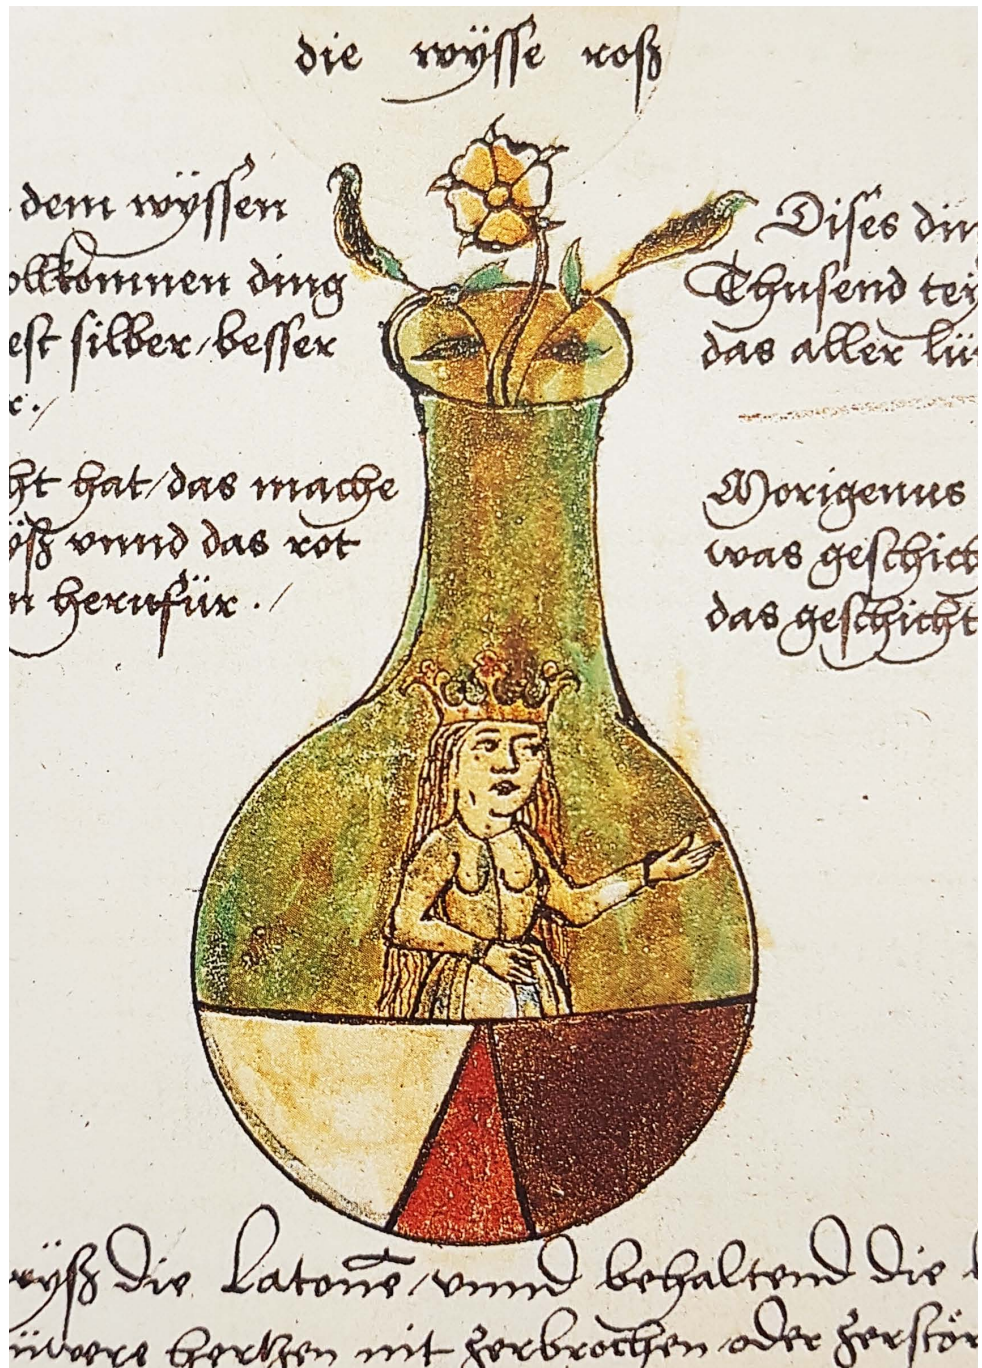 die wÿsse roß
dem wÿssen
ollkomnen ding
est silber / besser
r ./
ht hat / das mache
ÿß vnnd das rot
n hernfür ./
Dises din
Thusend tey
das aller lüt
Morigenus
was geschich
das geschicht
wÿß die Latonē / vnnd behaltend die
üwere hertzen nit zerbrochen oder zerstör